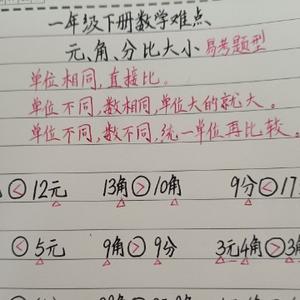 一年级下册数学难点
元、角、分比大小 易考题型
单位相同,直接比。
单位不同,数相同,单位大的就大。
单位不同,数不同,统一单位再比较。
< 12元 13角 > 10角 9分 < 17
< 5元 9角 > 9分 3元4角 > 3